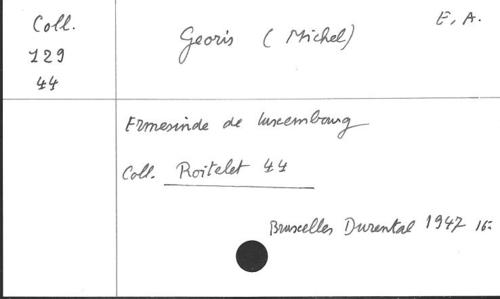 Coll.
129
44
Georis (Michel)
E. A.
Ermesinde de luxembourg
Coll. Roitelet 44
Bruxelles Durental 1947 16-